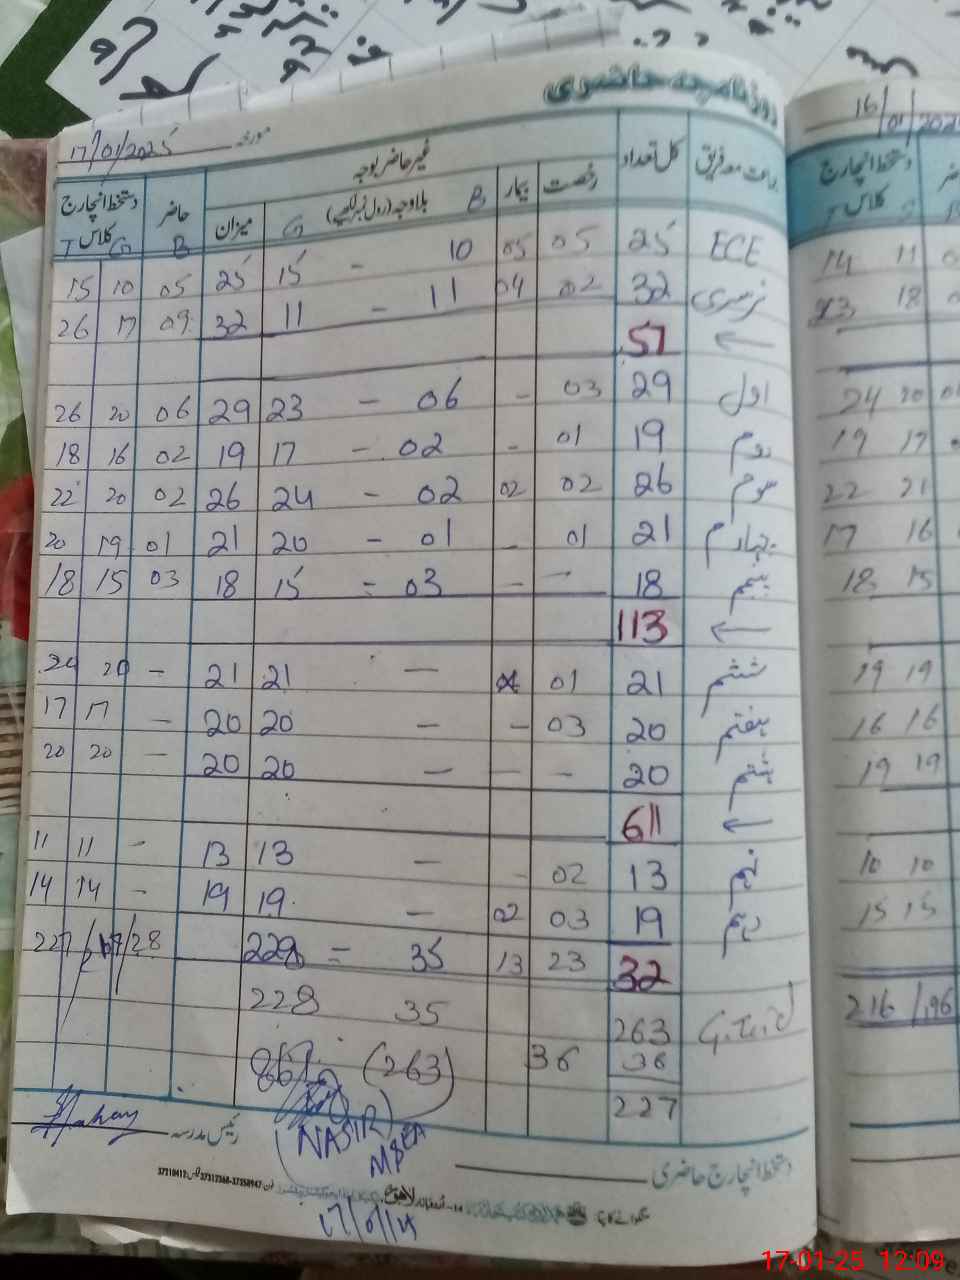 روزنامچہ حاضری
مورخہ 17/01/2025
جماعت معہ فریق کل تعداد غیر حاضر بوجہ حاضر دستخط انچارج کلاس
رخصت بیمار بلاوجہ (رول نمبر لکھیے) B G میزان B G T
ECE 25 05 05 10 - 15 25 05 10 15
نرسری 32 02 04 11 - 11 32 09 17 26
← 57
اول 29 03 - 06 - 23 29 06 20 26
دوم 19 01 - 02 - 17 19 02 16 18
سوم 26 02 02 02 - 24 26 02 20 22
چہارم 21 01 - 01 - 20 21 01 19 20
پنجم 18 - - 03 = 15 18 03 15 18
← 113
ششم 21 01 - 21 21 - 20 20
ہفتم 20 03 - - 20 20 - 17 17
ہشتم 20 - - - 20 20 - 20 20
← 61
نہم 13 02 - - 13 13 - 11 11
دہم 19 03 02 - 19 19 - 14 14
32 23 13 35 = 228 28 / 227
G.Total 263 35 228
36 36 (263)
227
NASIR
MBEA
رئیس مدرسہ
دستخط انچارج حاضری
37310412 37312368-37350947
لاہور
17/01/25
16/01/202
دستخط انچارج
کلاس
T G
14 11
23 18
24 20
19 17
22 21
17 16
18 15
19 19
16 16
19 19
10 10
15 15
216 / 196
17-01-25 12:09